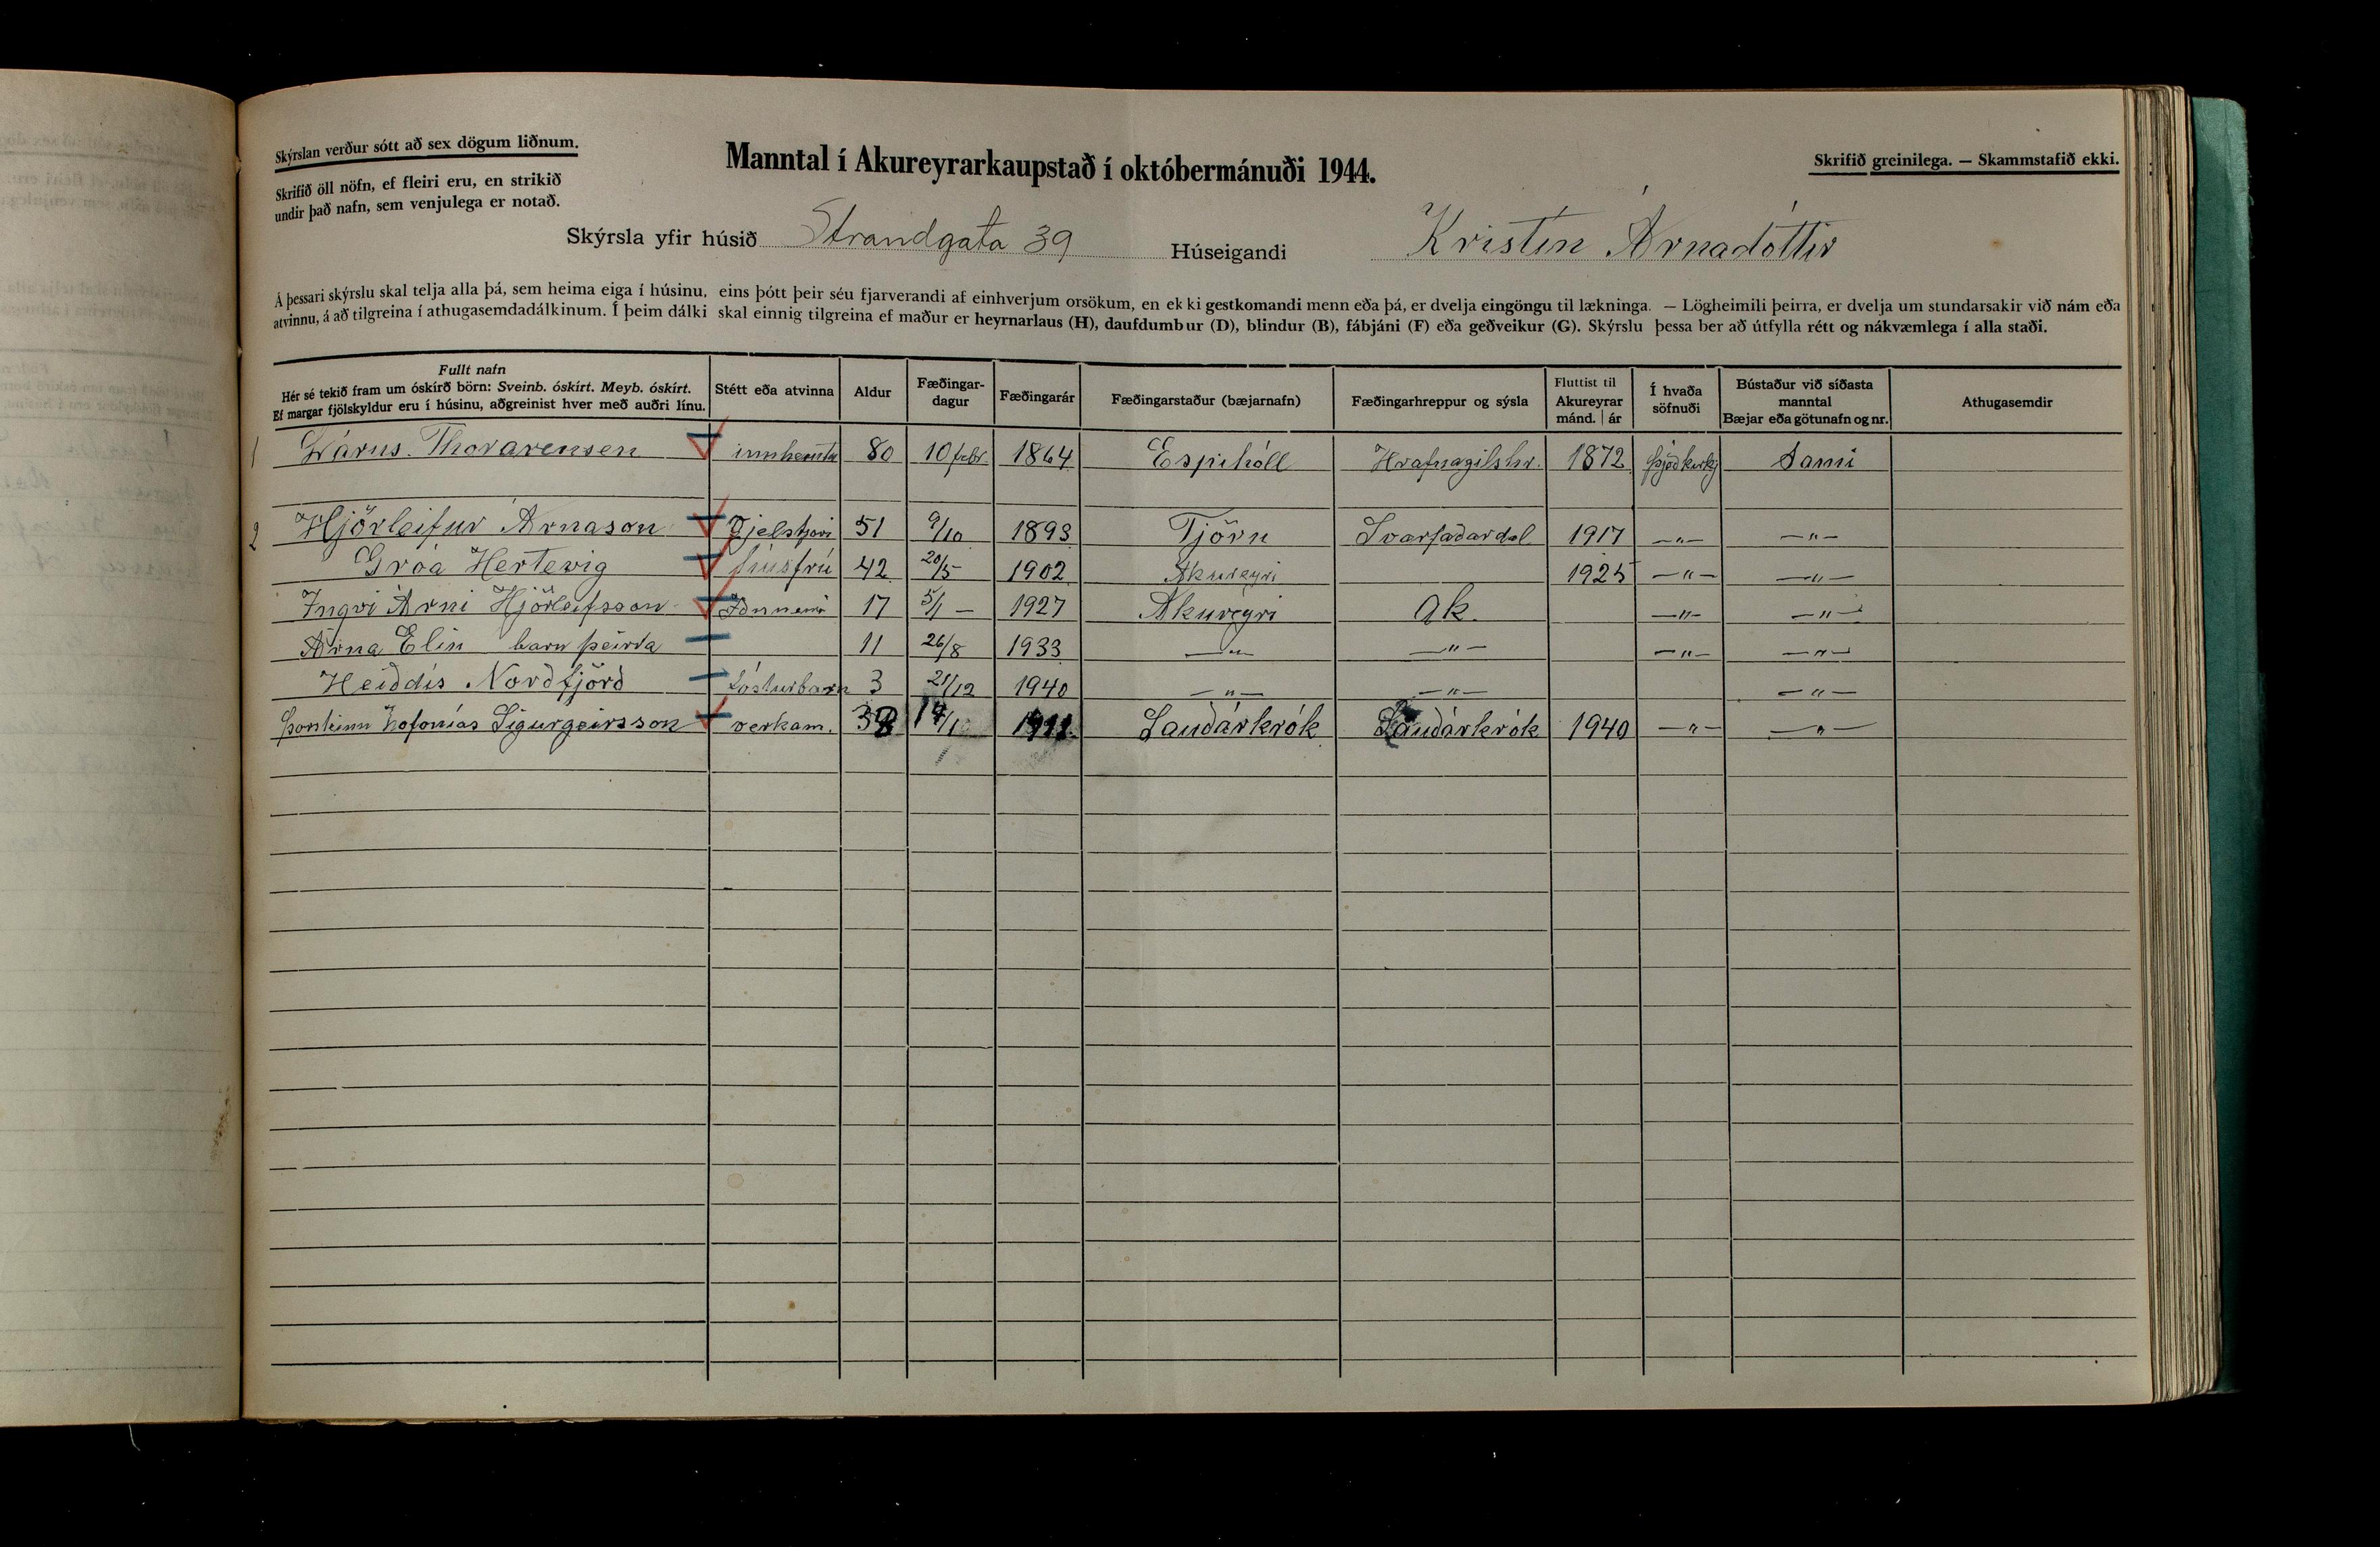 Skýrslan verður sótt að sex dögum liðnum.
Skrifið öll nöfn, ef fleiri eru, en strikið
undir það nafn, sem venjulega er notað.
Manntal í Akureyrarkaupstað í októbermánuði 1944.
Skrifið greinilega. — Skammstafið ekki.
Skýrsla yfir húsið Strandgata 39 Húseigandi Kristín Árnadóttir
Á þessari skýrslu skal telja alla þá, sem heima eiga í húsinu, eins þótt þeir séu fjarverandi af einhverjum orsökum, en ekki gestkomandi menn eða þá, er dvelja eingöngu til lækninga. — Lögheimili þeirra, er dvelja um stundarsakir við nám eða
atvinnu, á að tilgreina í athugasemdadálkinum. Í þeim dálki skal einnig tilgreina ef maður er heyrnarlaus (H), daufdumbur (D), blindur (B), fábjáni (F) eða geðveikur (G). Skýrslu þessa ber að útfylla rétt og nákvæmlega í alla staði.
Fullt nafn
Hér sé tekið fram um óskírð börn: Sveinb. óskírt. Meyb. óskírt.
Ef margar fjölskyldur eru í húsinu, aðgreinist hver með auðri línu.
Stétt eða atvinna
Aldur
Fæðingar-
dagur
Fæðingarár
Fæðingarstaður (bæjarnafn)
Fæðingarhreppur og sýsla
Fluttist til
Akureyrar
mánd. | ár
Í hvaða
söfnuði
Bústaður við síðasta
manntal
Bæjar eða götunafn og nr.
Athugasemdir
1 Lárus. Thorarensen innheimta 80 10 febr. 1864 Espihóll Hrafnagilshr. 1872 þjóðkirkj Sami
2 Hjörleifur Árnason 51 9/10 1893 Tjörn Svarfaðardal 1917 —"— —"—
Gróa Hertevig húsfrú 42 20/5 1902 Akureyri 1925 —"— —"—
Ingvi Árni Hjörleifsson Iðnnemi 17 5/1 — 1927 Akureyri Ak. —"— —"—
Árna Elín barn þeirra 11 26/8 1933 —"— —"— —"— —"—
Heiðdís Norðfjörð fósturbarn 3 21/12 1940 —"— —"— —"—
Þorsteinn Sófonías Sigurgeirsson verkam. Sauðárkrók Sauðárkrók 1940 —"— —"—